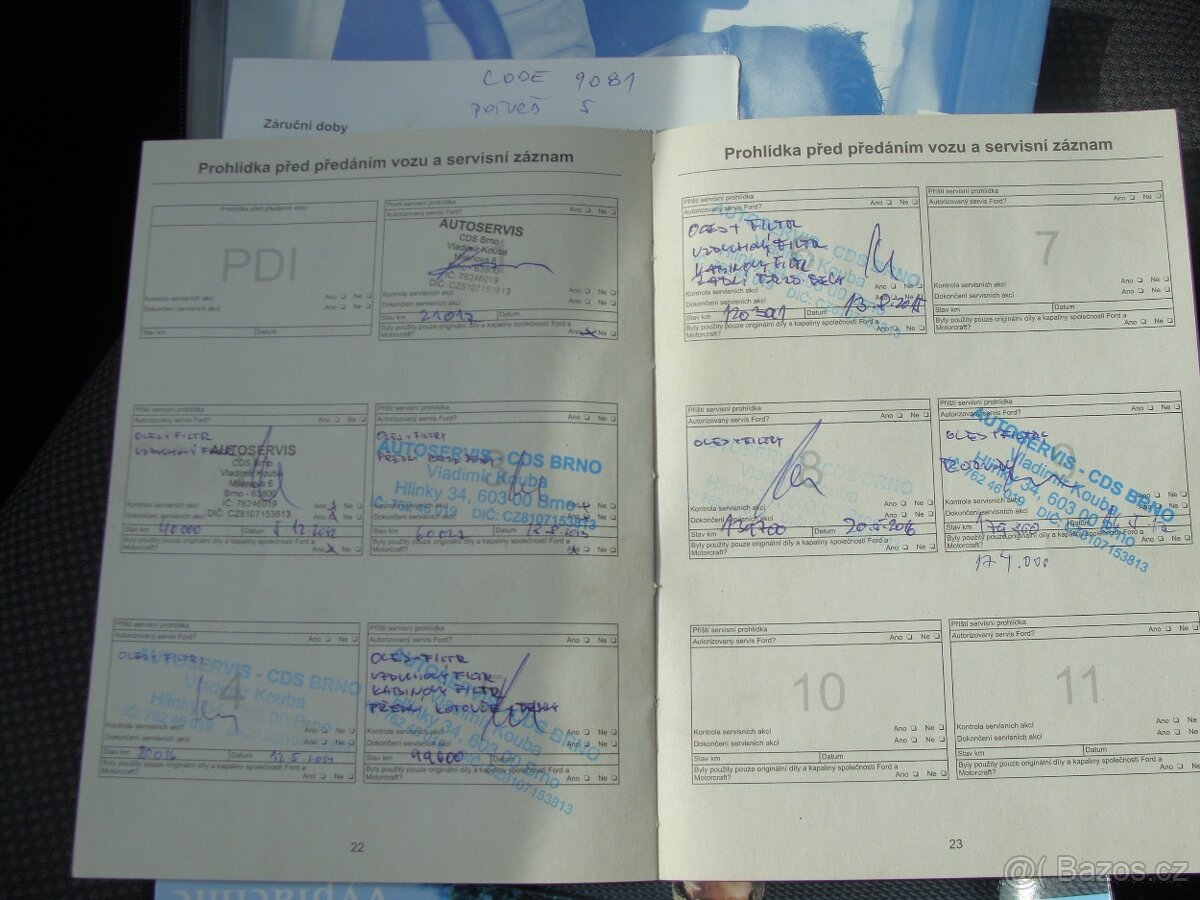 CODE 9081
Záruční doby
Prohlídka před předáním vozu a servisní záznam
Prohlídka před předáním vozu
PDI
Kontrola servisních akcí
Dokončení servisních akcí
Ano Ne
Ano Ne
Stav km Datum
Příští servisní prohlídka
Autorizovaný servis Ford? Ano Ne
AUTOSERVIS
CDS Brno
Vladimír Kouba
Milénova 6
Brno - 63800
IČ: 76246019
DIČ: CZ8107153813
Kontrola servisních akcí Ano Ne
Dokončení servisních akcí Ano Ne
Stav km 21012 Datum
Byly použity pouze originální díly a kapaliny společnosti Ford a
Motorcraft? Ano Ne
Příští servisní prohlídka
Autorizovaný servis Ford? Ano Ne
OLEJ + FILTR
VZDUCHOVÝ FILTR
AUTOSERVIS
CDS Brno
Vladimír Kouba
Milénova 6
Brno - 63800
IČ: 76246019
DIČ: CZ8107153813
Kontrola servisních akcí Ano Ne
Dokončení servisních akcí Ano Ne
Stav km 40000 Datum 5.12.2012
Byly použity pouze originální díly a kapaliny společnosti Ford a
Motorcraft? Ano Ne
Příští servisní prohlídka
Autorizovaný servis Ford? Ano Ne
OLEJ + FILTRY
AUTOSERVIS - CDS BRNO
Vladimír Kouba
Hlinky 34, 603 00 Brno
DIČ: CZ8107153813
Kontrola servisních akcí
Dokončení servisních akcí
Stav km Datum
Byly použity pouze originální díly a kapaliny společnosti Ford a
Motorcraft? Ano Ne
Příští servisní prohlídka
Autorizovaný servis Ford? Ano Ne
4
OLEJ + FILTRY
AUTOSERVIS - CDS BRNO
Vladimír Kouba
Hlinky 34, 603 00 Brno
IČ: 762 46 019
Kontrola servisních akcí
Dokončení servisních akcí Ano Ne
Stav km Datum 12.5.2014
Byly použity pouze originální díly a kapaliny společnosti Ford a
Motorcraft? Ano Ne
Příští servisní prohlídka
Autorizovaný servis Ford? Ano Ne
OLEJ + FILTR
VZDUCHOVÝ FILTR
KABINOVÝ FILTR
PŘEDNÍ KOTOUČE + DESKY
Kontrola servisních akcí Ano Ne
Dokončení servisních akcí Ano Ne
Stav km 99600 Datum
Byly použity pouze originální díly a kapaliny společnosti Ford a
Motorcraft? Ano Ne
22
Prohlídka před předáním vozu a servisní záznam
Příští servisní prohlídka
Autorizovaný servis Ford? Ano Ne
OLEJ + FILTR
VZDUCHOVÝ FILTR
KABINOVÝ FILTR
Kontrola servisních akcí
Dokončení servisních akcí
Stav km Datum
Byly použity pouze originální díly a kapaliny společnosti Ford a
Motorcraft? Ano Ne
Příští servisní prohlídka
Autorizovaný servis Ford? Ano Ne
7
Kontrola servisních akcí Ano Ne
Dokončení servisních akcí Ano Ne
Stav km Datum
Byly použity pouze originální díly a kapaliny společnosti Ford a
Motorcraft? Ano Ne
Příští servisní prohlídka
Autorizovaný servis Ford? Ano Ne
OLEJ + FILTRY
8
Kontrola servisních akcí Ano Ne
Dokončení servisních akcí Ano Ne
Stav km 139700 Datum 20.5.2016
Byly použity pouze originální díly a kapaliny společnosti Ford a
Motorcraft? Ano Ne
Příští servisní prohlídka
Autorizovaný servis Ford? Ano Ne
OLEJ + FILTRY
AUTOSERVIS - CDS BRNO
Vladimír Kouba
Hlinky 34, 603 00 Brno
Kontrola servisních akcí
Dokončení servisních akcí
Stav km Datum
Byly použity pouze originální díly a kapaliny společnosti Ford a
Motorcraft? Ano Ne
174.000
Příští servisní prohlídka
Autorizovaný servis Ford? Ano Ne
10
Kontrola servisních akcí Ano Ne
Dokončení servisních akcí Ano Ne
Stav km Datum
Byly použity pouze originální díly a kapaliny společnosti Ford a
Motorcraft? Ano Ne
Příští servisní prohlídka
Autorizovaný servis Ford? Ano Ne
11
Kontrola servisních akcí Ano Ne
Dokončení servisních akcí Ano Ne
Stav km Datum
Byly použity pouze originální díly a kapaliny společnosti Ford a
Motorcraft? Ano Ne
23
Bazos.cz